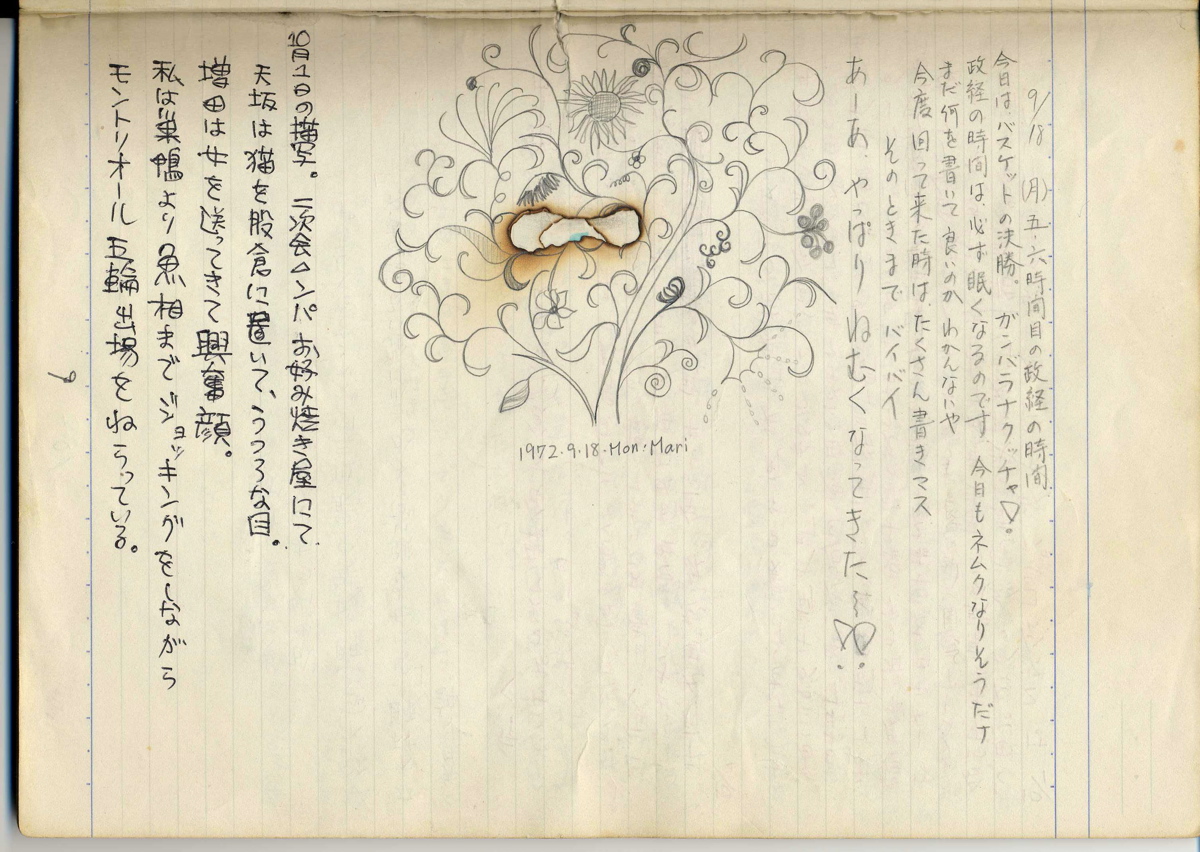 9/18 (月) 五、六時間目の政経の時間
今日は、バスケットの決勝。ガンバラナクッチャ!
政経の時間は、必ず眠くなるのです。今日もネムクなりそうだナ
まだ何を書いて良いのかわかんないや
今度回って来た時は、たくさん書きマス
そのときまでバイバイ
あーあ、やっぱりねむくなってきた…!!
1972.9.18.Mon.Mari
10月1日の描写。二次会コンパ お好み焼き屋にて、
天坂は猫を股倉に置いて、うつろな目。
増田は女を送ってきて興奮顔。
私は巣鴨より魚相までジョッキングをしながら
モントリオール五輪出場をねらっている。